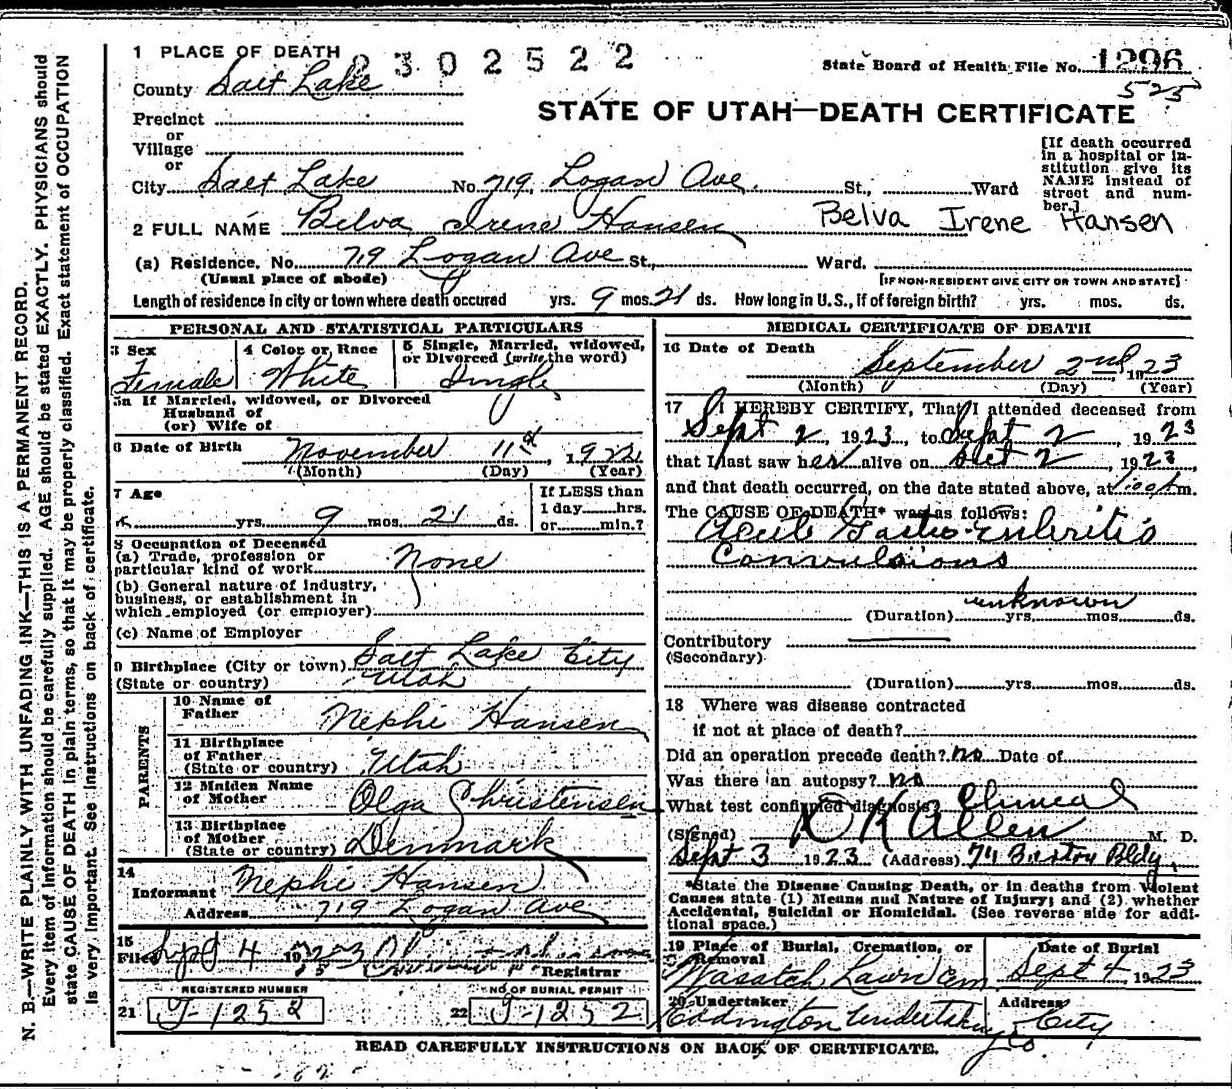 1 PLACE OF DEATH
2302522
State Board of Health File No. 1296
County Salt Lake
525
STATE OF UTAH—DEATH CERTIFICATE
Precinct
or
Village
or
City Salt Lake No. 719 Logan Ave. St., Ward
[If death occurred
in a hospital or in-
stitution give its
NAME instead of
street and num-
ber.]
2 FULL NAME Belva Irene Hansen Belva Irene Hansen
(a) Residence, No. 719 Logan Ave St., Ward.
(Usual place of abode) [IF NON-RESIDENT GIVE CITY OR TOWN AND STATE]
Length of residence in city or town where death occured yrs. 9 mos. 21 ds. How long in U.S., if of foreign birth? yrs. mos. ds.
PERSONAL AND STATISTICAL PARTICULARS
3 Sex 4 Color or Race 5 Single, Married, widowed,
or Divorced (write the word)
Female White Single
5a If Married, widowed, or Divorced
Husband of
(or) Wife of
6 Date of Birth November 11st, 1922
(Month) (Day) (Year)
7 Age
If LESS than
1 day hrs.
or min.?
yrs. 9 mos. 21 ds.
8 Occupation of Deceased
(a) Trade, profession or
particular kind of work None
(b) General nature of industry,
business, or establishment in
which employed (or employer)
(c) Name of Employer
9 Birthplace (City or town) Salt Lake City
(State or country) Utah
PARENTS
10 Name of
Father Nephi Hansen
11 Birthplace
of Father
(State or country) Utah
12 Maiden Name
of Mother Olga Christensen
13 Birthplace
of Mother
(State or country) Denmark
14
Informant Nephi Hansen
Address 719 Logan Ave
15
Filed Sept 4 1923
Registrar
REGISTERED NUMBER NO OF BURIAL PERMIT
21 J-1252 22 J-1252
MEDICAL CERTIFICATE OF DEATH
16 Date of Death September 2nd, 1923
(Month) (Day) (Year)
17 I HEREBY CERTIFY, That I attended deceased from
Sept 2, 1923, to Sept 2, 1923
that I last saw her alive on Sept 2, 1923,
and that death occurred, on the date stated above, at 1:00 P m.
The CAUSE OF DEATH* was as follows:
Acute Gastro-Enteritis
Convulsions
unknown
(Duration) yrs. mos. ds.
Contributory
(Secondary)
(Duration) yrs. mos. ds.
18 Where was disease contracted
if not at place of death?
Did an operation precede death? no Date of
Was there an autopsy? no
What test confirmed diagnosis? Clinical
(Signed) D K Allen M. D.
Sept 3 1923 (Address) 711 Boston Bldg.
*State the Disease Causing Death, or in deaths from Violent
Causes state (1) Means and Nature of Injury; and (2) whether
Accidental, Suicidal or Homicidal. (See reverse side for addi-
tional space.)
19 Place of Burial, Cremation, or
Removal Date of Burial
Wasatch Lawn Cem Sept 4 1923
20 Undertaker Address
Eddington Undertaking Co. City
READ CAREFULLY INSTRUCTIONS ON BACK OF CERTIFICATE.
N. B.—WRITE PLAINLY WITH UNFADING INK—THIS IS A PERMANENT RECORD.
Every item of information should be carefully supplied. AGE should be stated EXACTLY. PHYSICIANS should
state CAUSE OF DEATH in plain terms, so that it may be properly classified. Exact statement of OCCUPATION
is very important. See instructions on back of certificate.